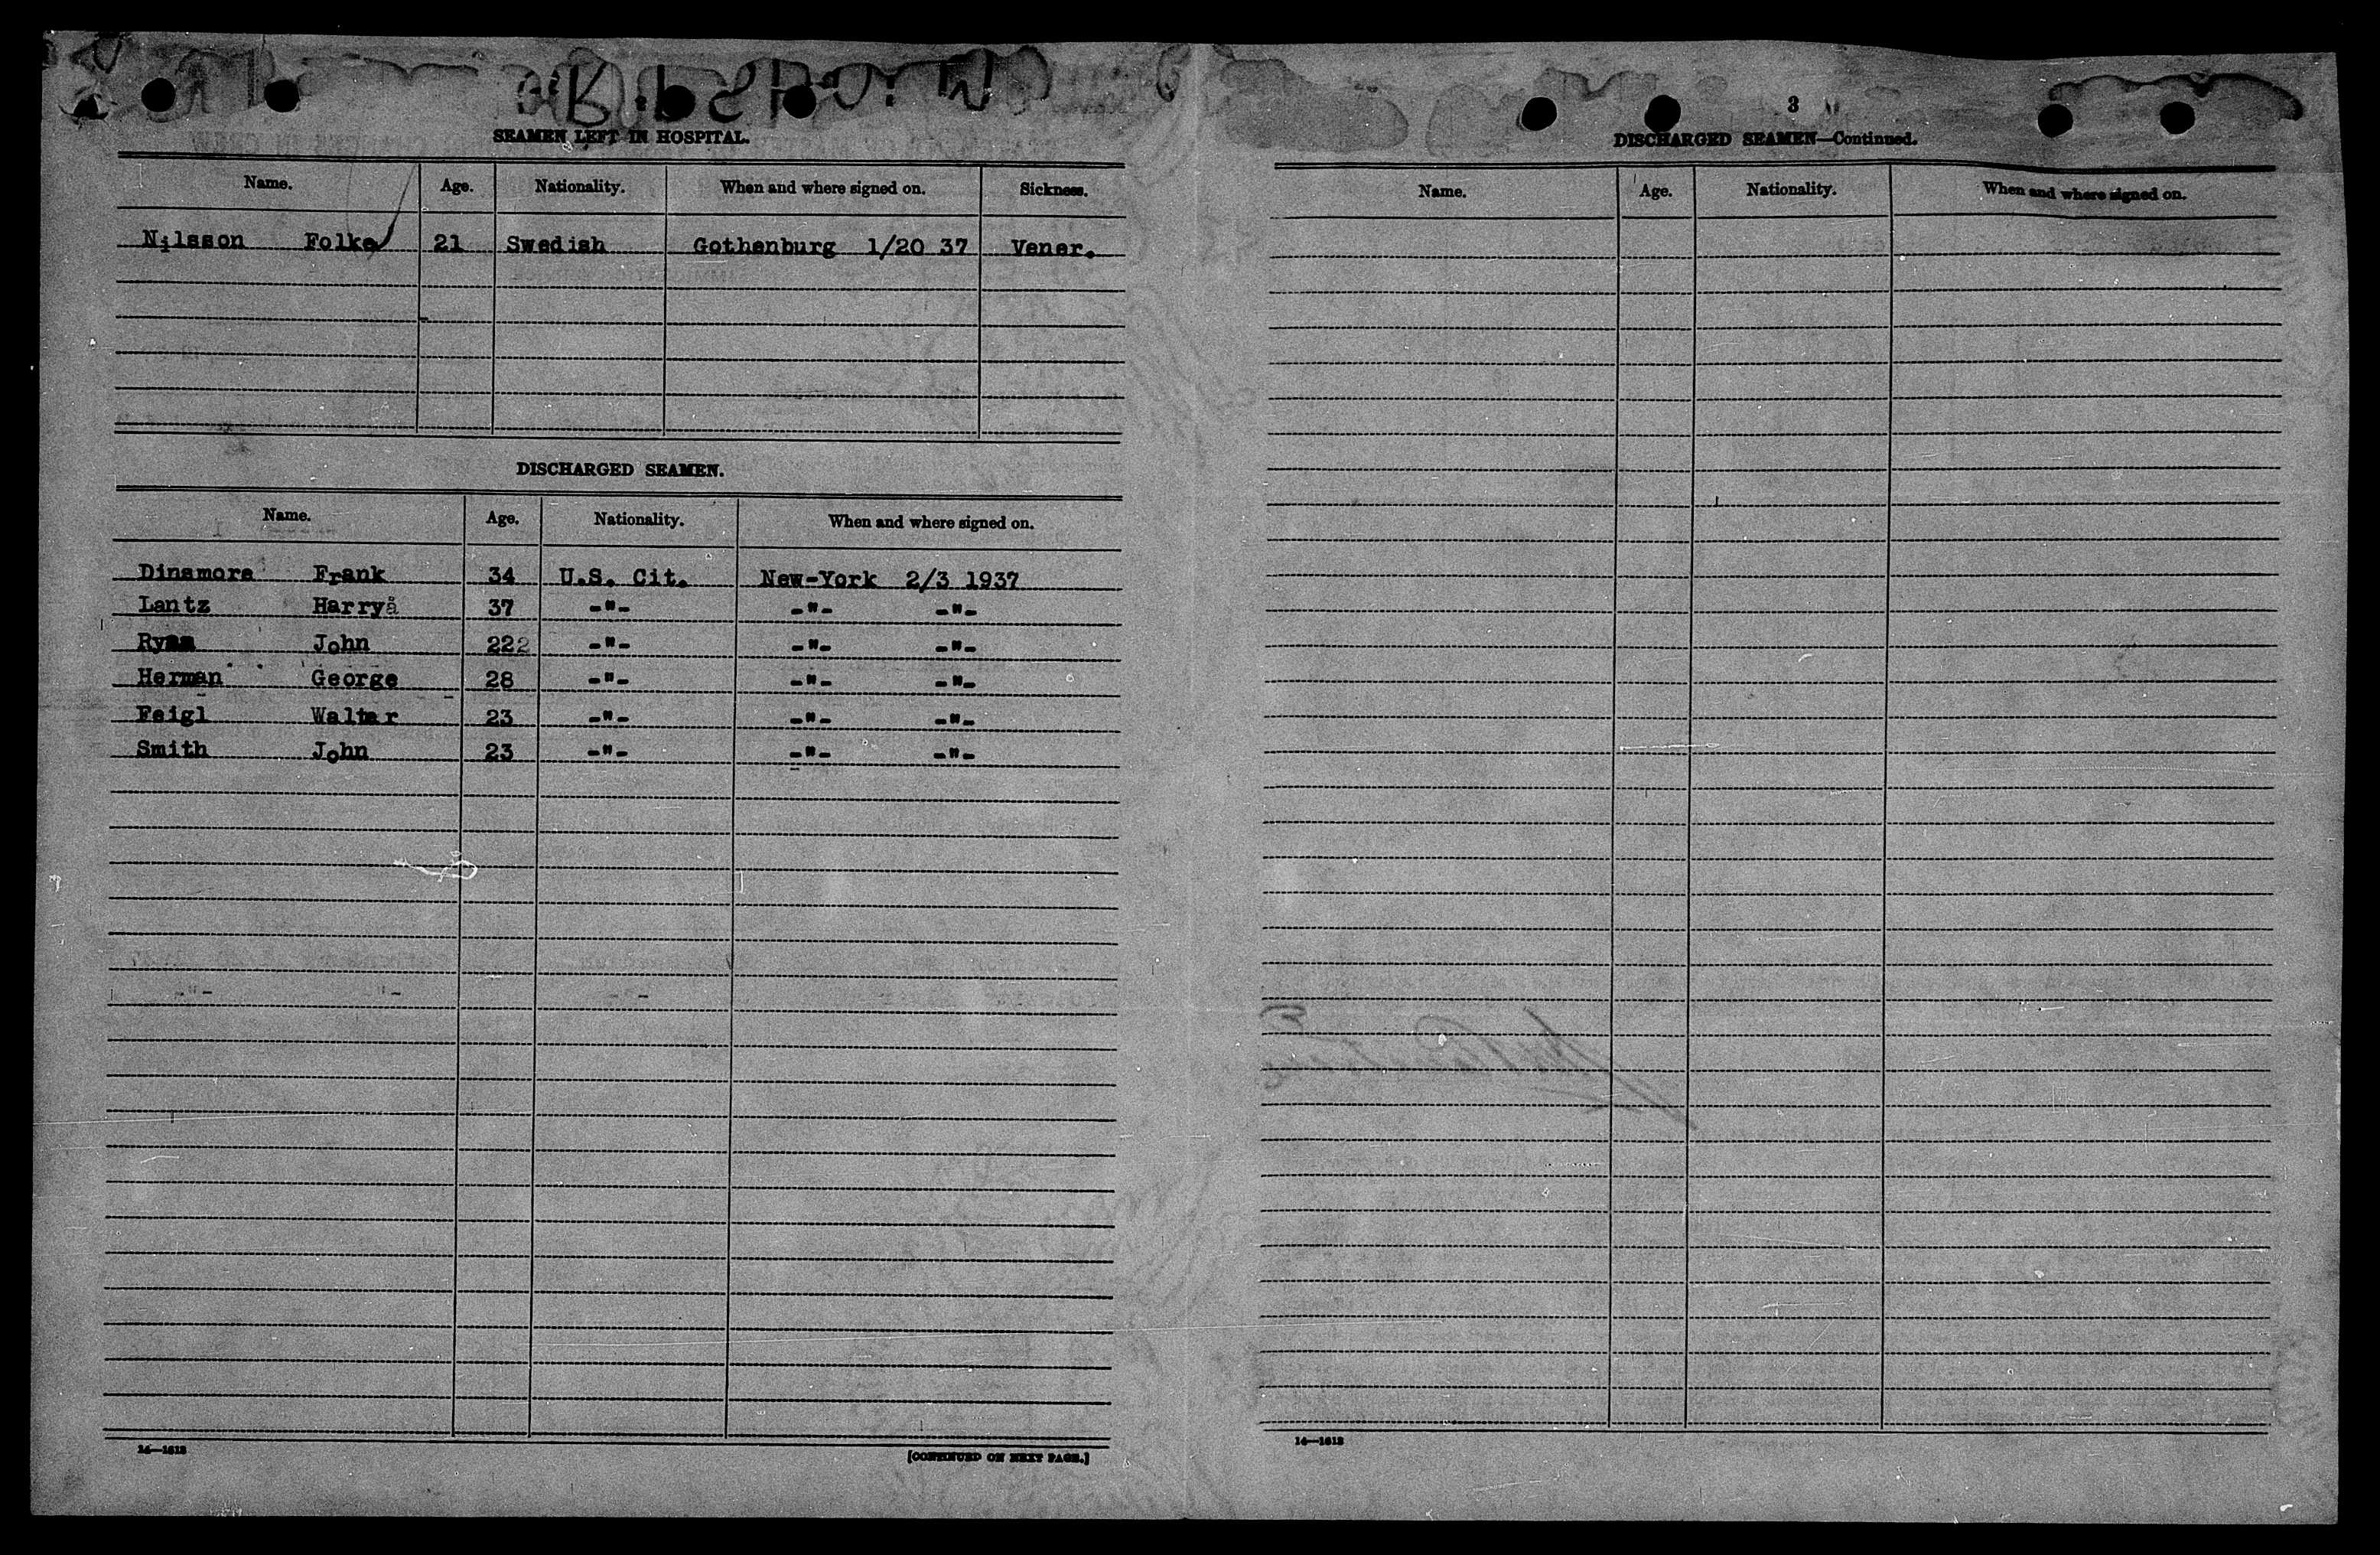 SEAMEN LEFT IN HOSPITAL.
Name. Age. Nationality. When and where signed on. Sickness.
Nilsson Folke 21 Swedish Gothenburg 1/20 37 Vener.
DISCHARGED SEAMEN.
Name. Age. Nationality. When and where signed on.
Dinsmore Frank 34 U.S. Cit. New-York 2/3 1937
Lantz Harryå 37 -"- -"- -"-
John 222 -"- -"- -"-
Herman George 28 -"- -"- -"-
Feigl Walter 23 -"- -"- -"-
Smith John 23 -"- -"- -"-
14—1613
[CONTINUED ON NEXT PAGE.]
3
DISCHARGED SEAMEN—Continued.
Name. Age. Nationality. When and where signed on.
14—1613